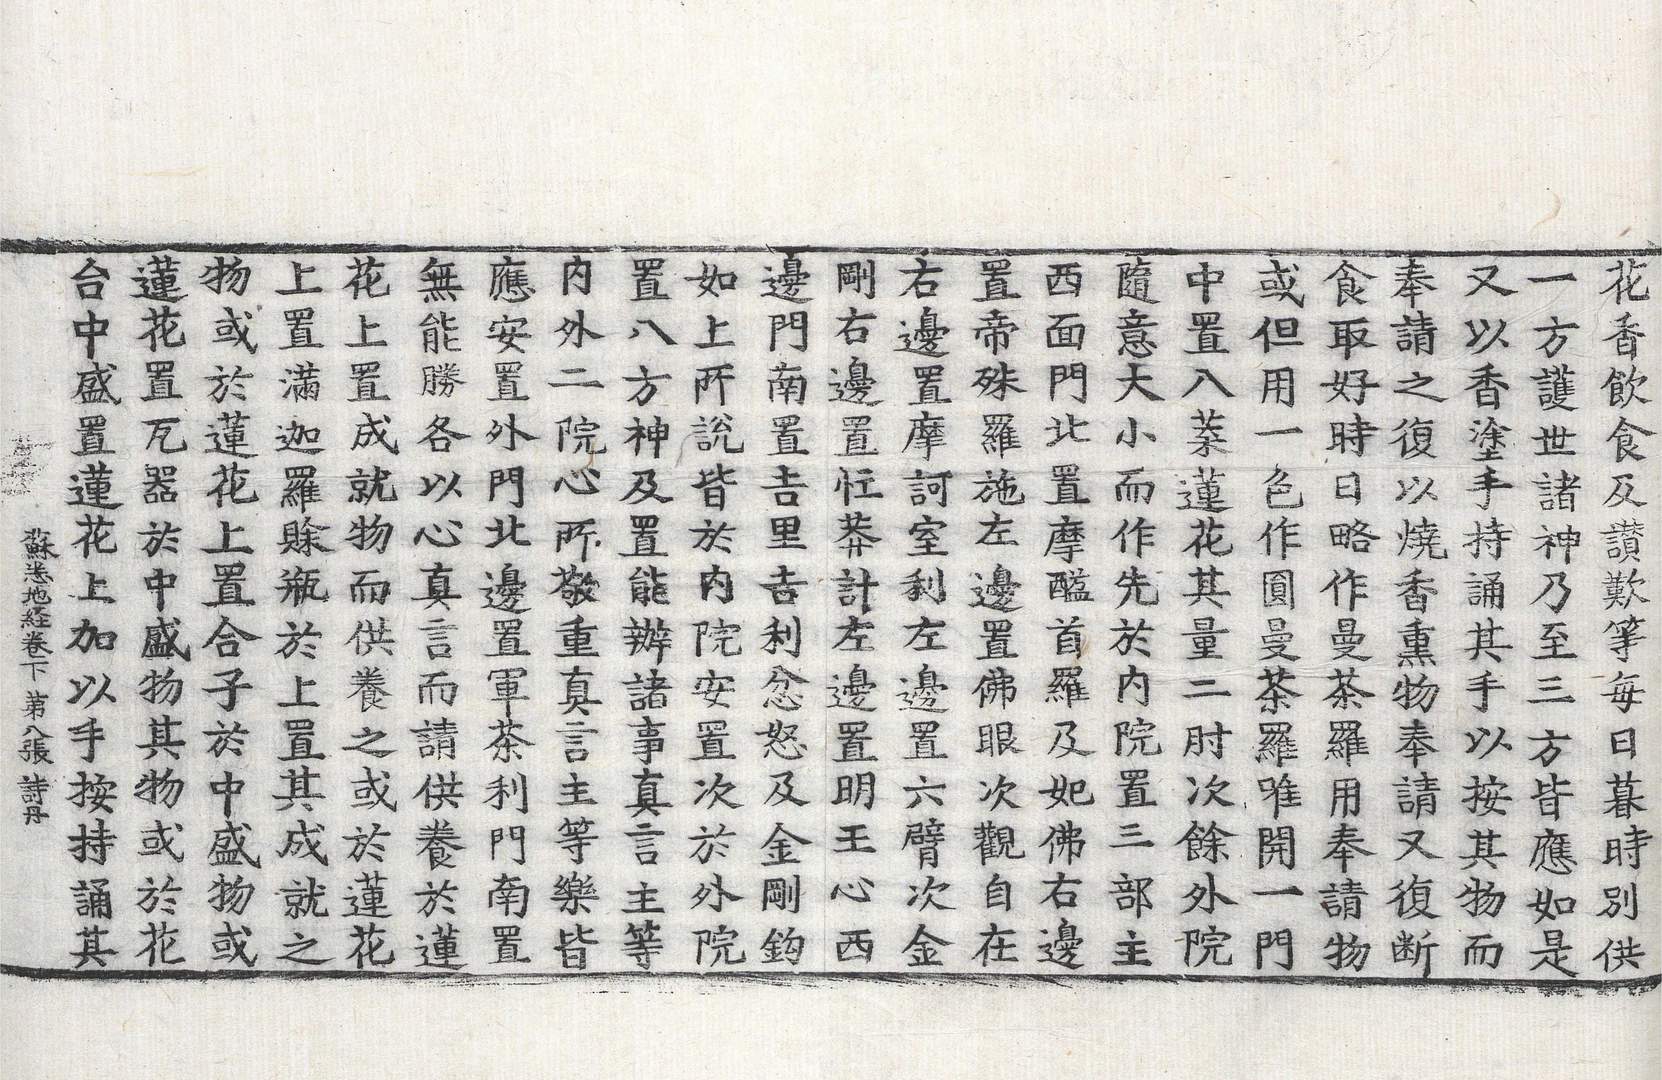 花香飲食及讃歎等每日暮時別供
一方護世諸神乃至三方皆應如是
又以香塗手持誦其手以按其物而
奉請之復以燒香熏物奉請又復断
食取好時日略作曼荼羅用奉請物
或但用一色作圓曼荼羅唯開一門
中置八葉蓮花其量二肘次餘外院
隨意大小而作先於內院置三部主
西面門北置摩醯首羅及妃佛右邊
置帝殊羅施左邊置佛眼次觀自在
右邊置摩訶室利左邊置六臂次金
剛右邊置忙莽計左邊置明王心西
邊門南置吉里吉利忿怒及金剛鉤
如上所說皆於內院安置次於外院
置八方神及置能辦諸事真言主等
內外二院心所敬重真言主等樂皆
應安置外門北邊置軍荼利門南置
無能勝各以心真言而請供養於蓮
花上置成就物而供養之或於蓮花
上置滿迦羅賖瓶於上置其成就之
物或於蓮花上置合子於中盛物或
蓮花置瓦器於中盛物其物或於花
台中盛置蓮花上加以手按持誦其
蘇悉地経卷下 第八張 詩丹